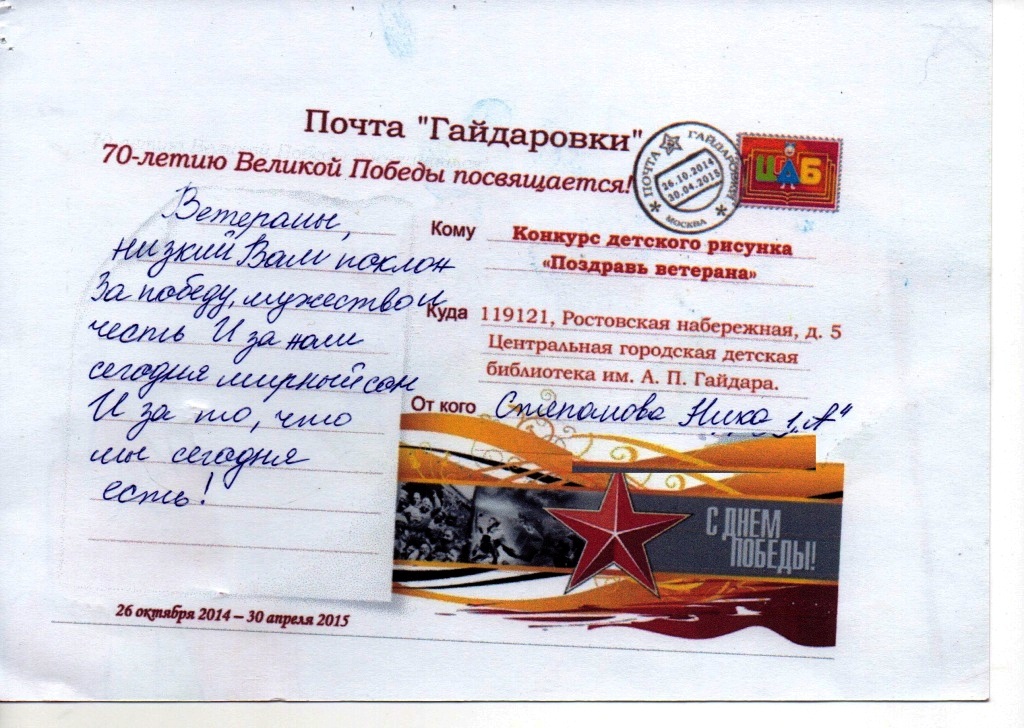 Почта "Гайдаровки"
70-летию Великой Победы посвящается!
ПОЧТА ГАЙДАРОВКИ
26.10.2014
30.04.2015
МОСКВА
ЦДБ
Ветераны,
низкий Вам поклон
За победу, мужество и
честь И за наш
сегодня мирный сон
И за то, что
мы сегодня
есть!
Кому Конкурс детского рисунка
«Поздравь ветерана»
Куда 119121, Ростовская набережная, д. 5
Центральная городская детская
библиотека им. А. П. Гайдара.
От кого Степанова Ника 1 „А"
С ДНЕМ
ПОБЕДЫ!
26 октября 2014 – 30 апреля 2015